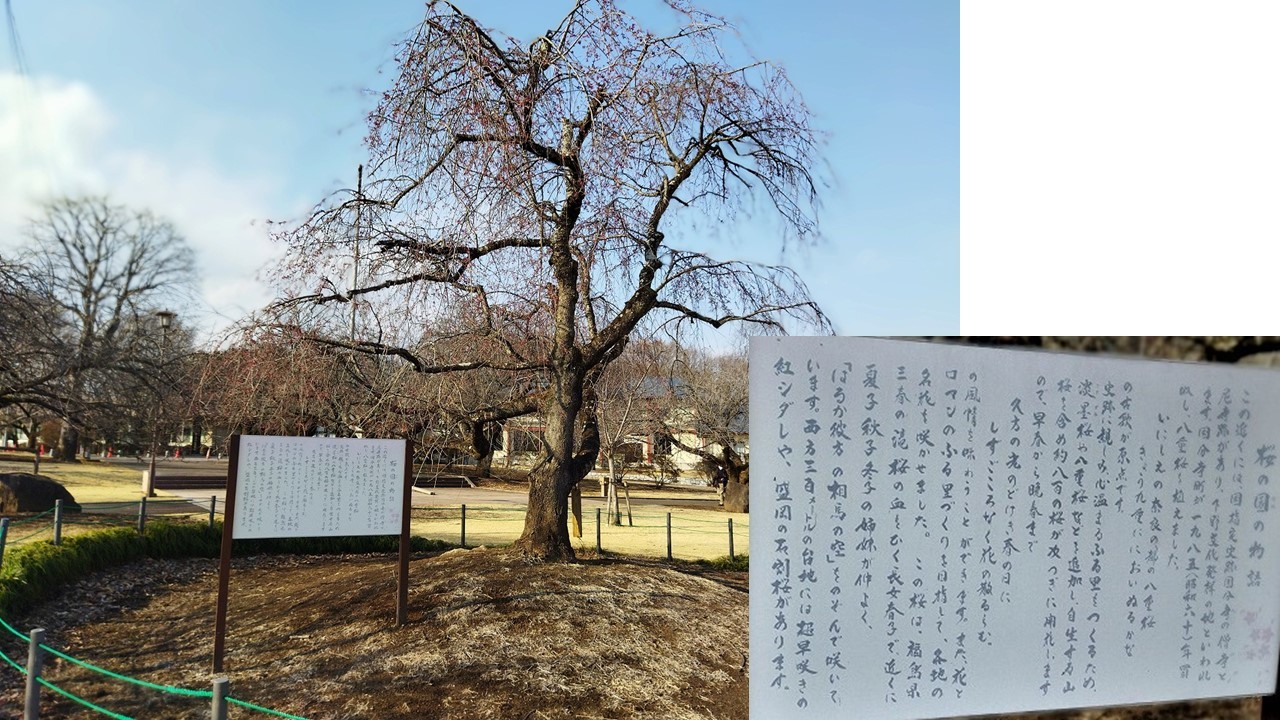 桜の園の物語
この辺くには、国指定史跡国分寺の僧寺と
尼寺跡があり、下野文化発祥の地といわれ
ます。国分寺町が一九八五(昭和六十)年習
欲し、八重桜を植えました。
いにしえの奈良の都の八重桜
きょう九重ににおいぬるかな
の古歌が原点です。
史跡に親しみ心温まるふる里をつくるため、
淡墨桜や八重桜などを追加し、自生する山
桜を含め約八百の桜が次つぎに開花します
ので、早春から晩春まで
久方の光のどけき春の日に
しずこころなく花の散るらむ
の風情を味わうことができます。また、花と
ロマンのふる里づくりを目指して、各地の
名花を咲かせました。この桜は、福島県
三春の滝桜の血をひく長女春子で近くに
夏子秋子冬子の姉妹が仲よく、
「はるか彼方の相馬の空」をのぞんで咲いて
います。西方三百メートルの台地には超早咲きの
紅シダレや、盛岡の石割桜があります。